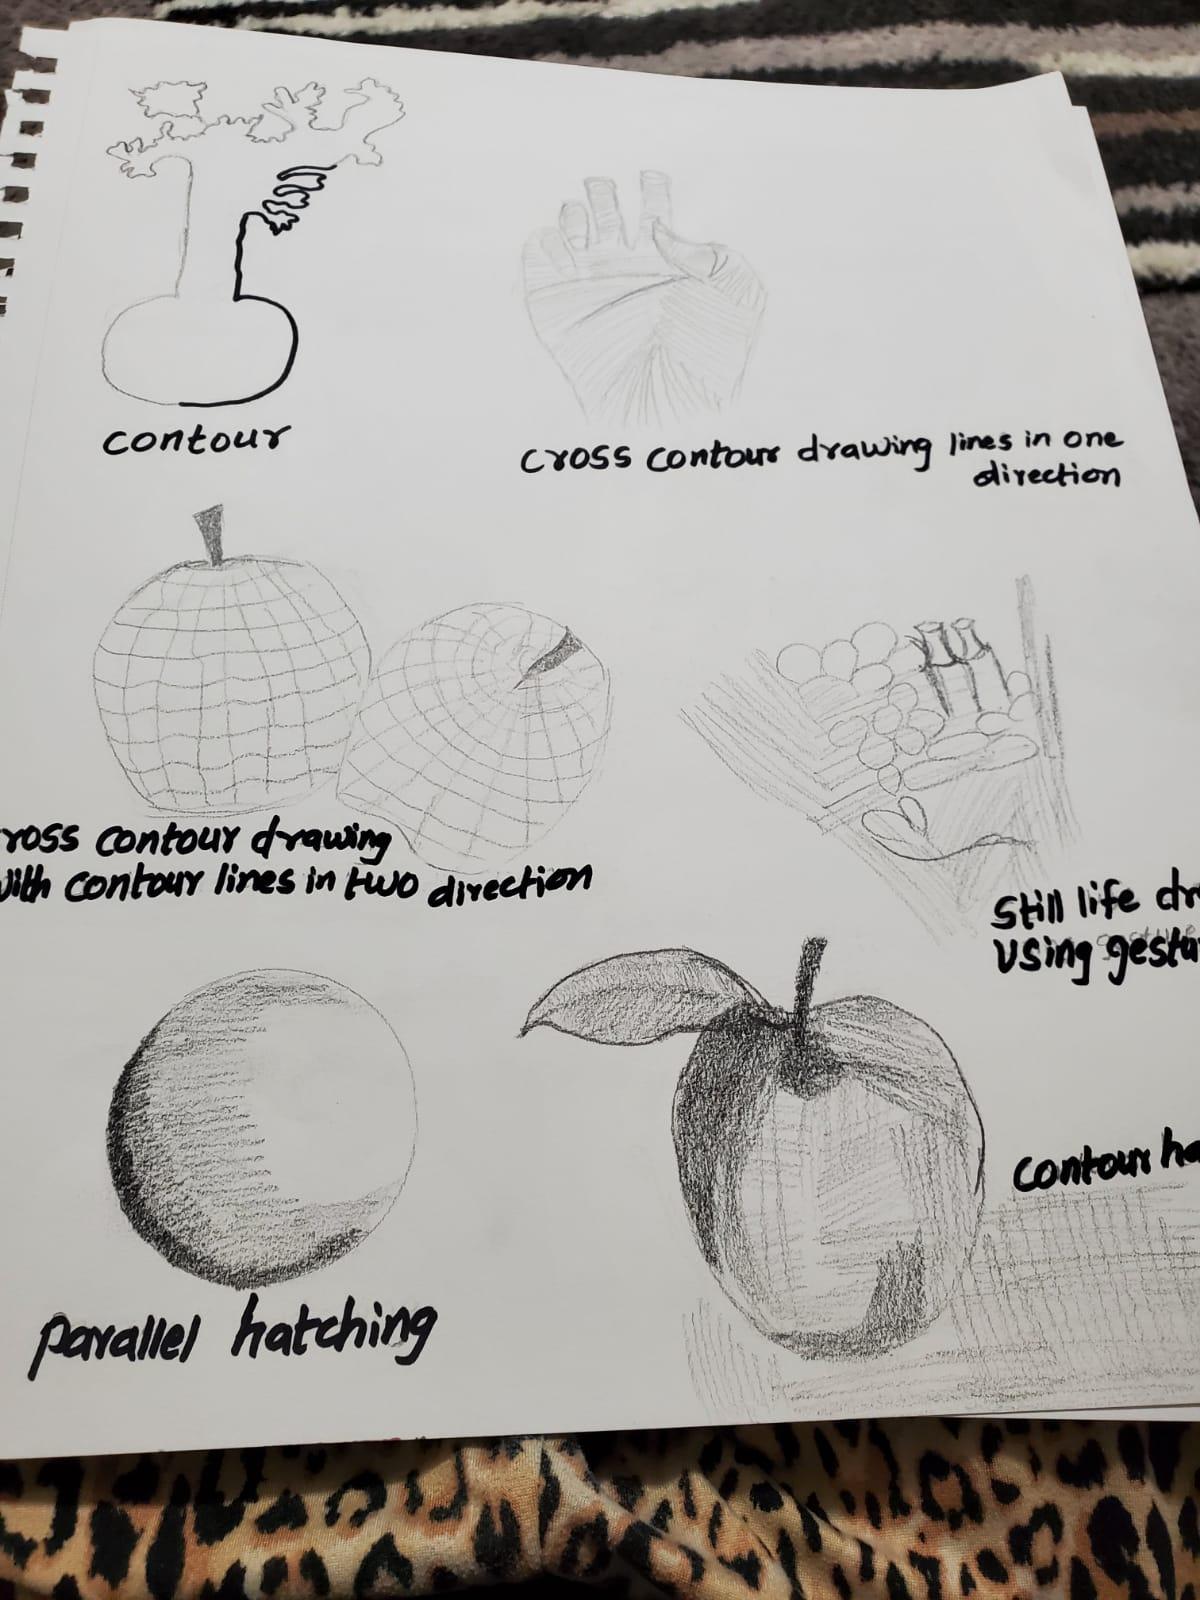 contour
cross contour drawing lines in one
direction
ross contour drawing
with contour lines in two direction
Still life
using
parallel hatching
contour